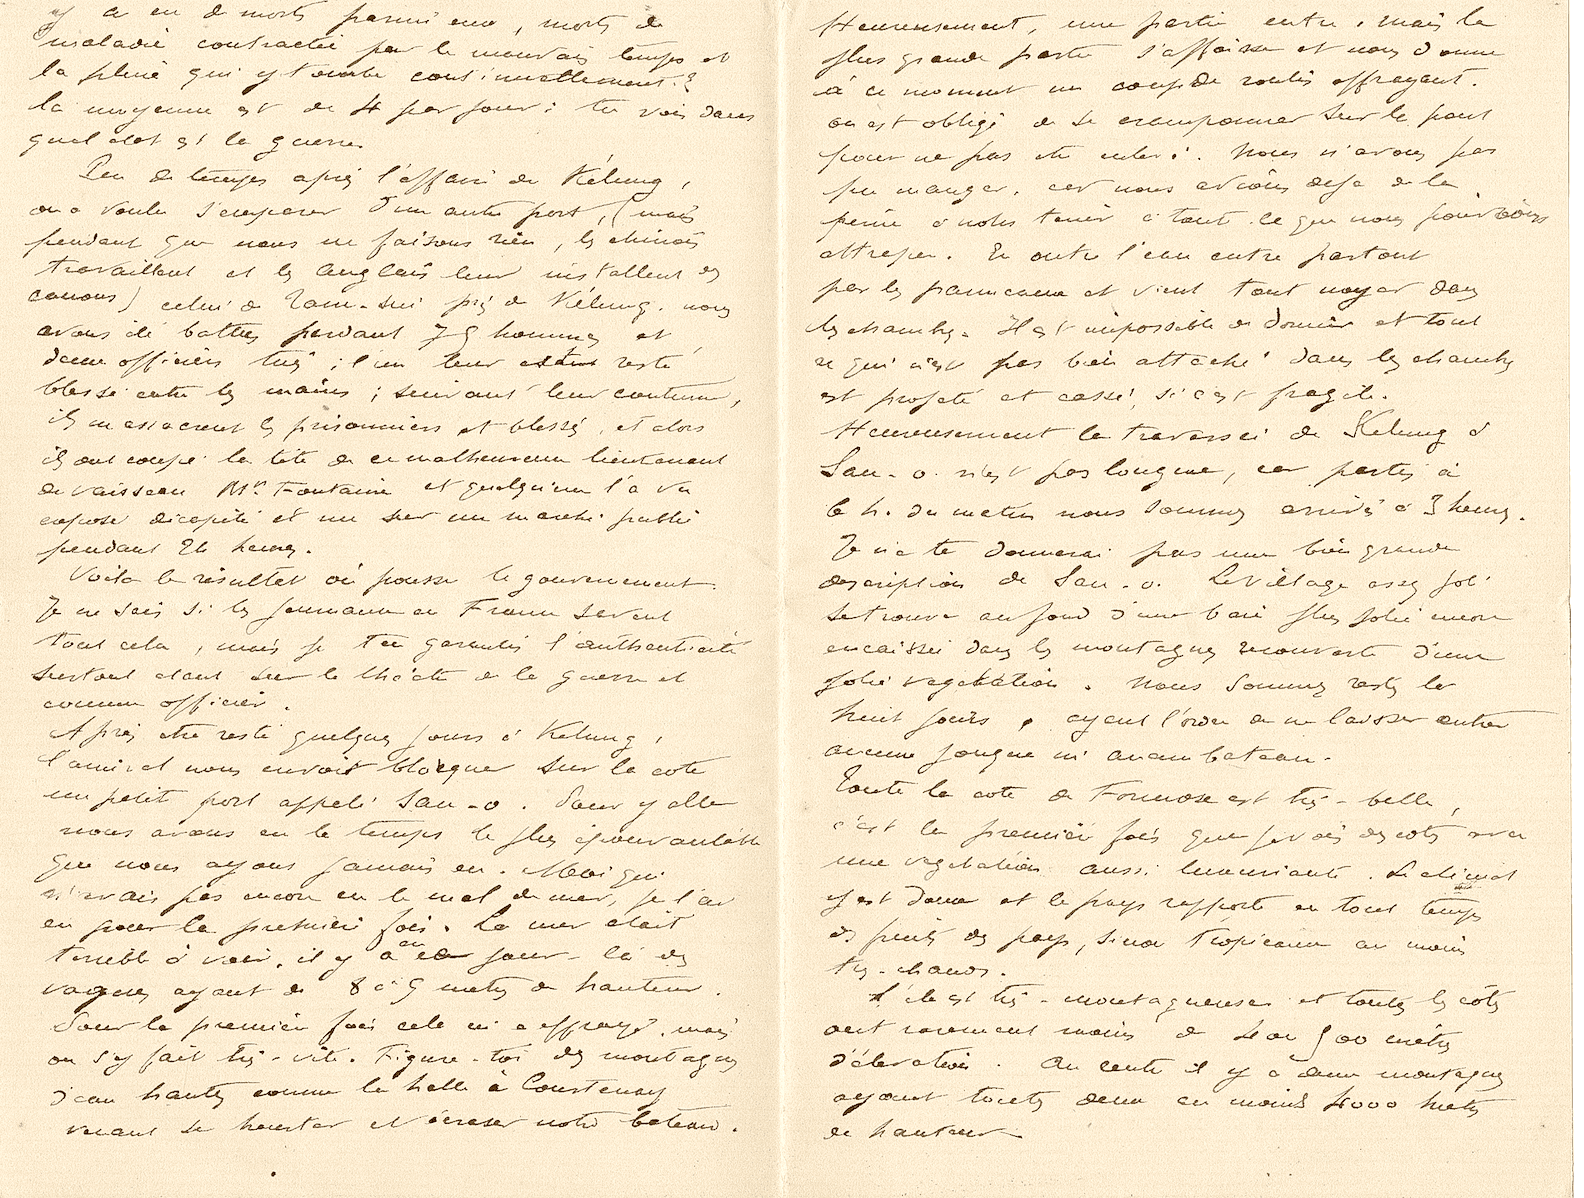 y a eu de morts parmi eux, morts de
maladie contractée par le mauvais temps et
la pluie qui y tombe continuellement.
la moyenne est de 4 par jour : tu vois dans
quel état est la guerre.
Peu de temps après l'affaire de Kélung,
on a voulu s'emparer d'un autre port, (mais
pendant que nous ne faisons rien, les chinois
travaillent et les Anglais leur installent des
canons) celui de Tam-sui près de Kélung. nous
avons été battus perdant 75 hommes et
deux officiers tués ; l'un leur étant resté
blessé entre les mains ; suivant leur coutume,
ils massacrent les prisonniers et blessés, et alors
ils ont coupé la tête de ce malheureux lieutenant
de vaisseau Mr. Fontaine et quelqu'un l'a vu
exposé décapité et nu sur un marché public
pendant 24 heures.
Voilà le résultat où pousse le gouvernement.
Je ne sais si les journaux en France savent
tout cela, mais je t'en garantis l'authenticité
surtout étant sur le théâtre de la guerre et
comme officier.
Après être resté quelques jours à Kélung,
l'amiral nous envoit bloquer sur la cote
un petit port appelé Sau-o. Pour y aller
nous avons eu le temps le plus épouvantable
que nous ayons jamais eu. Moi qui
n'avais pas encore eu le mal de mer, je l'ai
eu pour la première fois. La mer était
terrible à voir, il y a eu ce jour-là des
vagues ayant de 8 à 9 mètres de hauteur.
Pour la première fois cela m'a effrayé, mais
on s'y fait très-vite. Figure-toi des montagnes
d'eau hautes comme la halle à Courtenay
venant se heurter et écraser notre bateau.
Heureusement, une partie entre, mais la
plus grande partie s'affaisse et nous donne
à ce moment un coup de roulis effrayant.
on est obligé de se cramponner sur le pont
pour ne pas être enlevé. Nous n'avons pas
pu manger, car nous avions déjà de la
peine à nous tenir à tout ce que nous pouvions
attraper. En outre l'eau entre partout
par les panneaux et vient tout noyer dans
les chambres. Il est impossible de dormir et tout
ce qui n'est pas bien attaché dans les chambres
est projeté et cassé, si c'est fragile.
Heureusement la traversée de Kelung à
Sau-o. n'est pas longue, car partis à
6 h. du matin nous sommes arrivés à 3 heures.
Je ne te donnerai pas une bien grande
description de Sau-o. Le village assez joli
se trouve au fond d'une baie plus jolie encore
encaissée dans les montagnes recouverte d'une
jolie végétation. Nous sommes restés là
huit jours, ayant l'ordre de ne laisser entrer
aucune jonque ni aucun bateau.
Toute la cote de Formose est très-belle,
c'est la première fois que je vois des cotes avec
une végétation aussi luxuriante. Le climat
y est doux et le pays rapporte en tout temps
des fruits des pays, sinon tropicaux au moins
très-chauds.
L'île est très-montagneuse et toutes les côtes
ont rarement moins de 4 ou 500 mètres
d'élévation. Au centre il y a deux montagnes
ayant toutes deux au moins 4000 mètres
de hauteur.